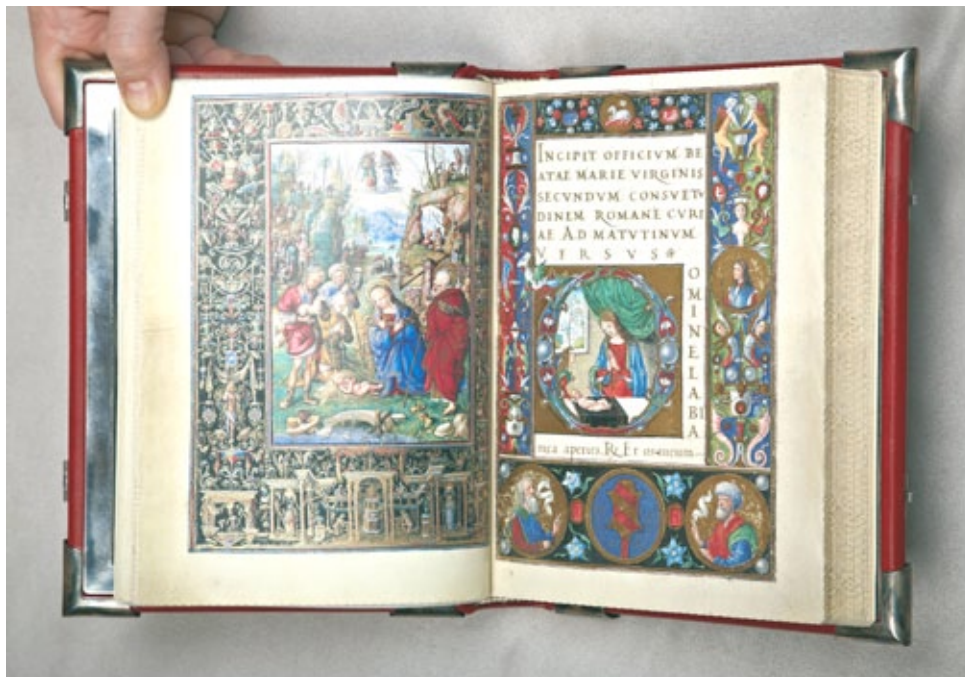 INCIPIT OFFICIVM BE
ATAE MARIE VIRGINIS
SECVNDVM CONSVETV
DINEM ROMANE CVRI
AE AD MATVTINVM
VERSVS
OMINE LABIA
mea aperies. R Et os meum